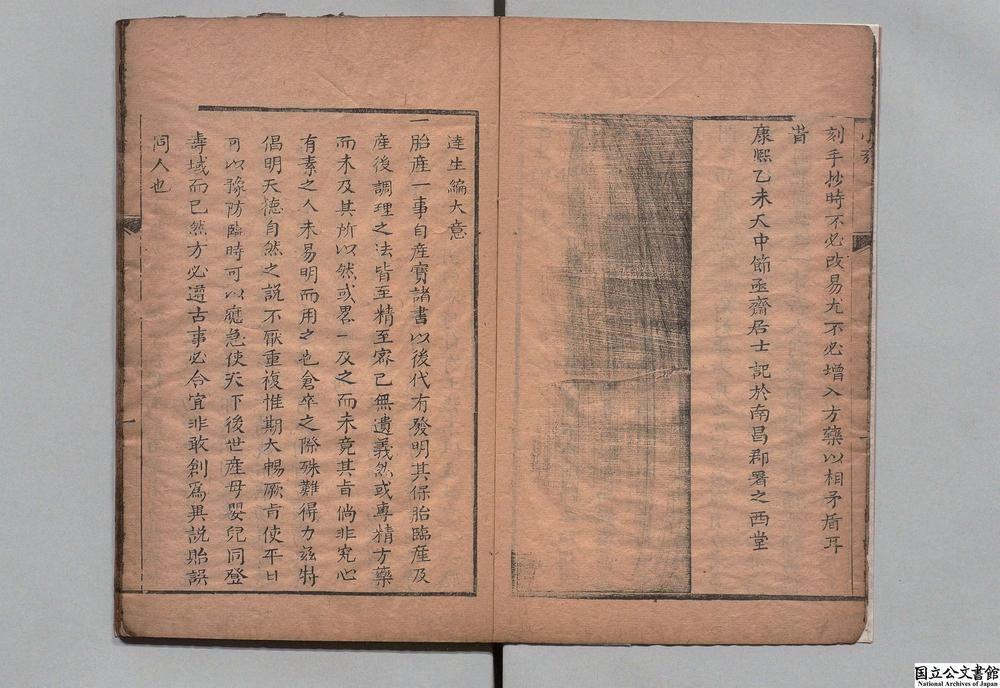 刻手抄時不必改易尤不必增入方藥以相矛盾耳
旹
康熈乙未天中節亟齋居士記於南昌郡署之西堂
達生編大意
一胎産一事自産寳諸書以後代有發明其保胎臨産及
産後調理之法皆至精至宻已無遺義然或專精方藥
而未及其所以然或畧一及之而未竟其旨倘非究心
有素之人未易明而用之也倉卒之際殊難得力茲特
倡明天徳自然之説不厭重複惟期大暢厥旨使平日
可以豫防臨時可以應急使天下後世産母嬰兒同登
壽域而已然方必遵古事必合宜非敢創爲異説貽誤
同人也
一
国立公文書館
National Archives of Japan